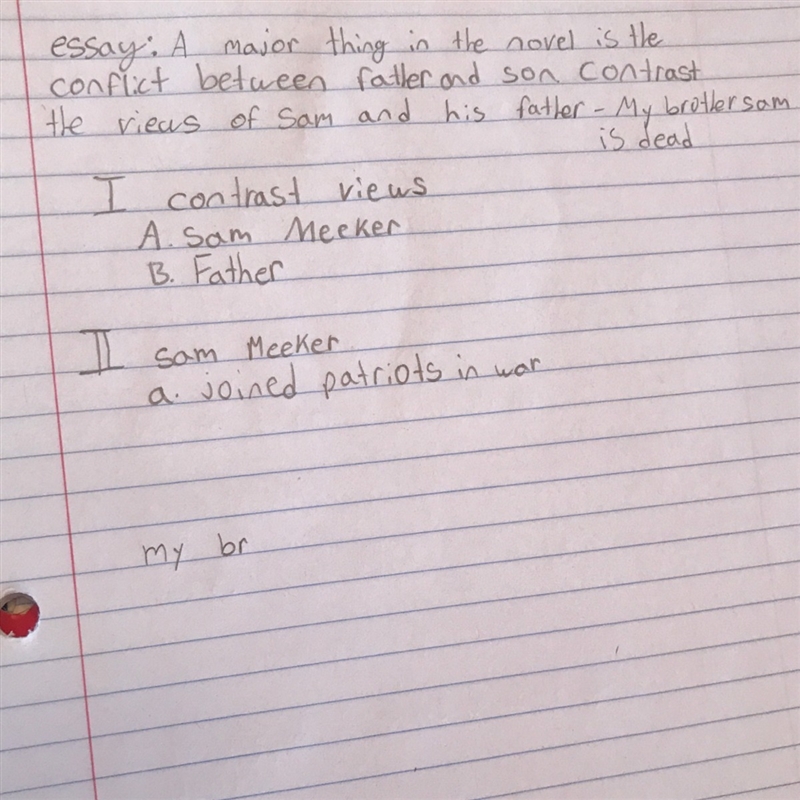 essay: A major thing in the novel is the
conflict between father and son Contrast
the views of Sam and his father - My brother sam
is dead
I contrast views
A. Sam Meeker
B. Father
II Sam Meeker
a. joined patriots in war
my br